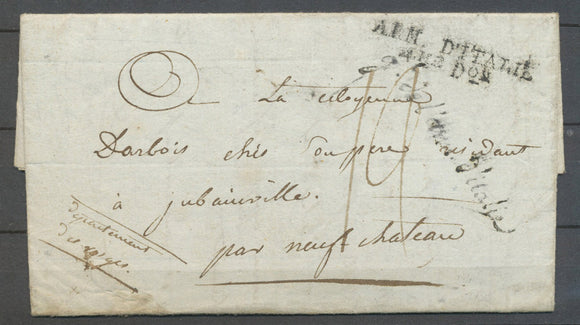 ARM. D'ITALIE
4ME Don
A La citoyenne
Darbois chés son pere residant
à jubainville.
par neufchateau
departement
des vosges.
d'italie